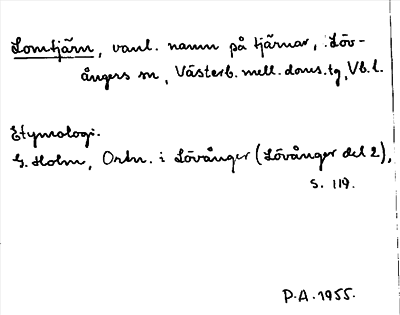 Lomtjärn, vanl. namn på tjärnar, i Löv-
ångers sn, Västerb. mell. doms. tg, Vb. l.
Etymologi.
G. Holm, Ortn. i Lövånger (Lövånger del 2),
s. 119.
P.A. 1955.